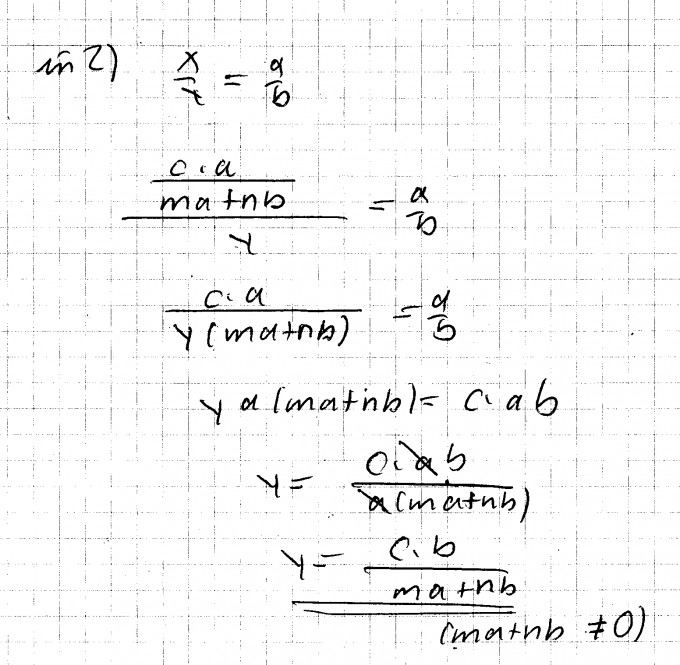 in 2) x/y = a/b
(c·a/(ma+nb))/y = a/b
c·a/(y(ma+nb)) = a/b
y a (ma+nb) = c·ab
y = c·ab/(a(ma+nb))
y = c·b/(ma+nb)
(ma+nb ≠ 0)